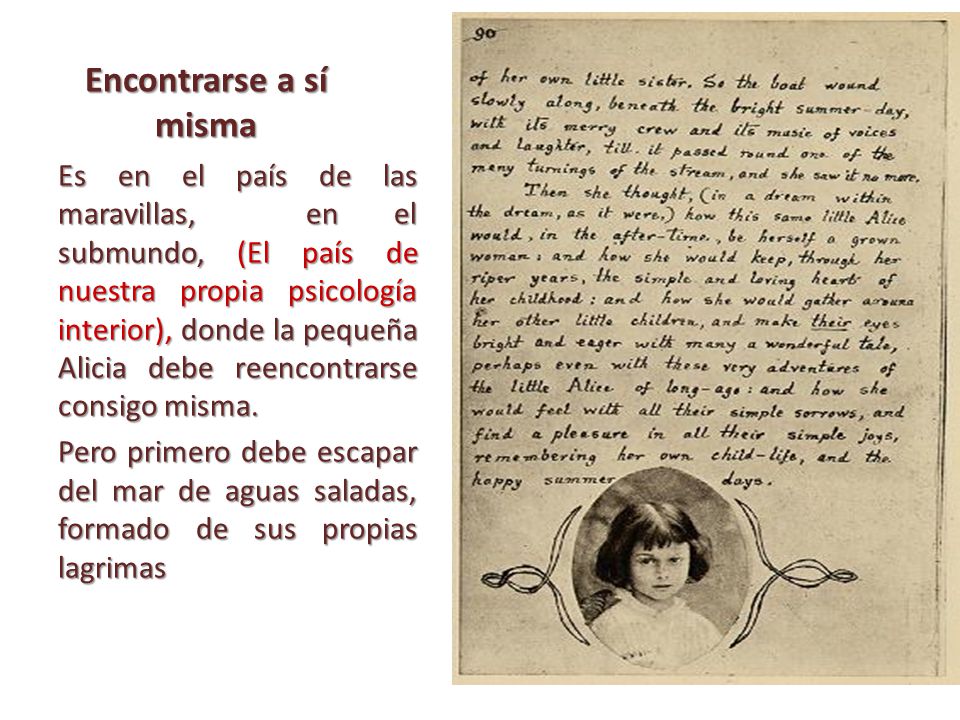 Encontrarse a sí
misma
Es en el país de las
maravillas, en el
submundo, (El país de
nuestra propia psicología
interior), donde la pequeña
Alicia debe reencontrarse
consigo misma.
Pero primero debe escapar
del mar de aguas saladas,
formado de sus propias
lagrimas
90
of her own little sister. So the boat wound
slowly along, beneath the bright summer-day,
with its merry crew and its music of voices
and laughter, till it passed round one of the
many turnings of the stream, and she saw it no more.
Then she thought, (in a dream within
the dream, as it were,) how this same little Alice
would, in the after-time, be herself a grown
woman: and how she would keep, through her
riper years, the simple and loving heart of
her childhood: and how she would gather around
her other little children, and make their eyes
bright and eager with many a wonderful tale,
perhaps even with these very adventures of
the little Alice of long-ago: and how she
would feel with all their simple sorrows, and
find a pleasure in all their simple joys,
remembering her own child-life, and the
happy summer days.